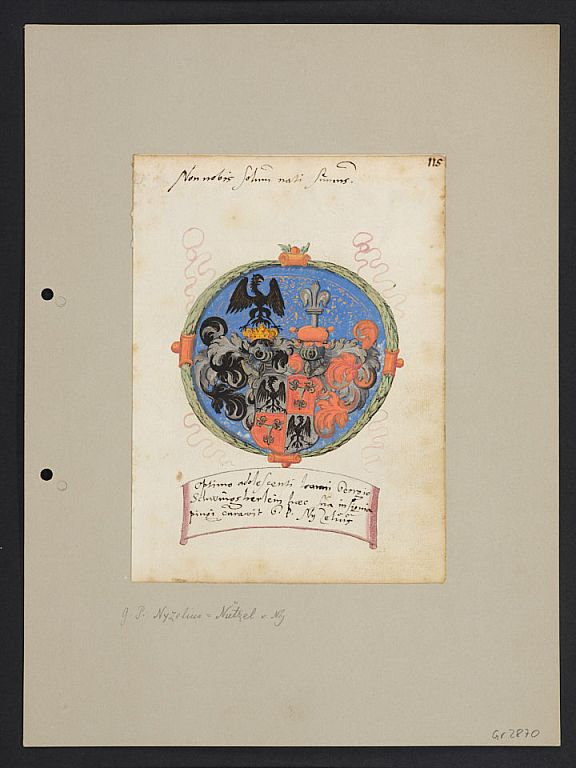 115
Non nobis solum nati sumus.
Optimo adolescenti Ioanni Georgio
haec sua insignia
pingi curavit G. P. Nyzelius
G. P. Nyzelius = Nützel v. Nbg
Gr. 2870